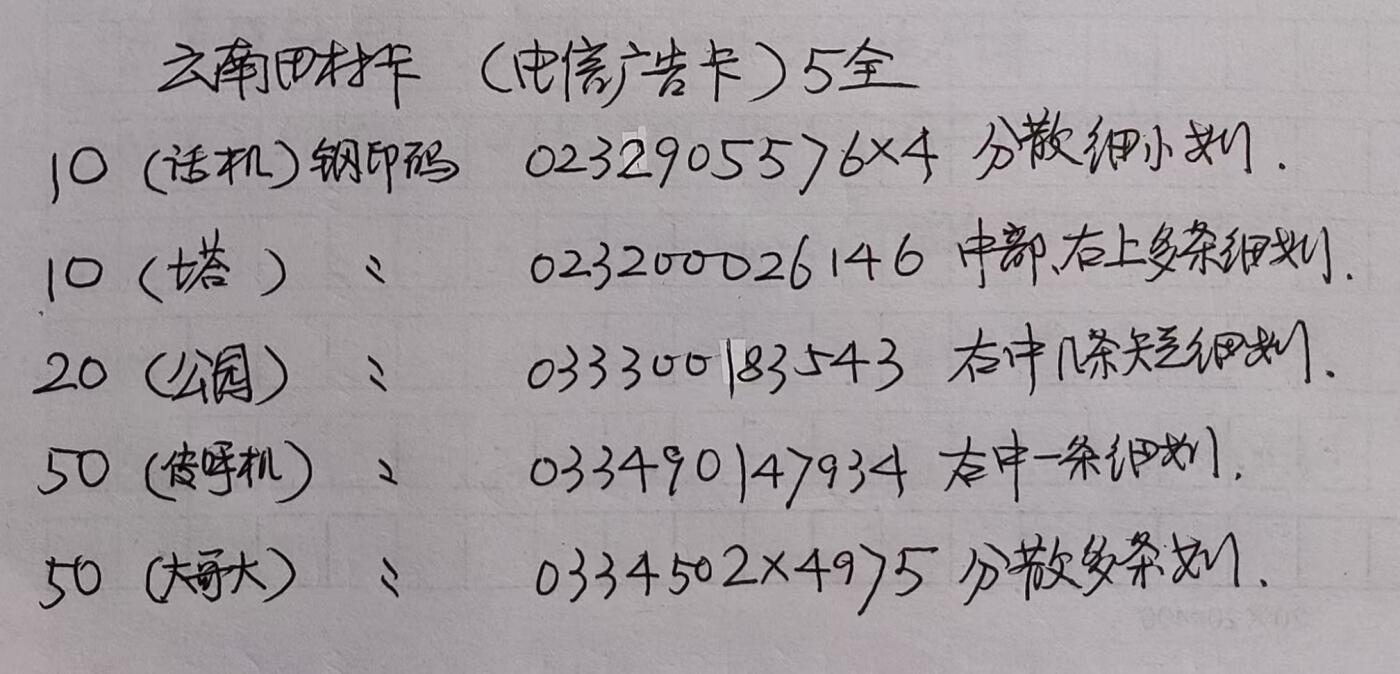 云南田村卡 （电信广告卡）5全
10（话机）钢印码 0232905576×4 分散细小划.
10（塔） 〃 023200026146 中部、右上多条细划.
20（公园） 〃 033300183543 右中几条短细划.
50（传呼机） 〃 033490147934 右中一条细划.
50（大哥大） 〃 0334502×4975 分散多条划.